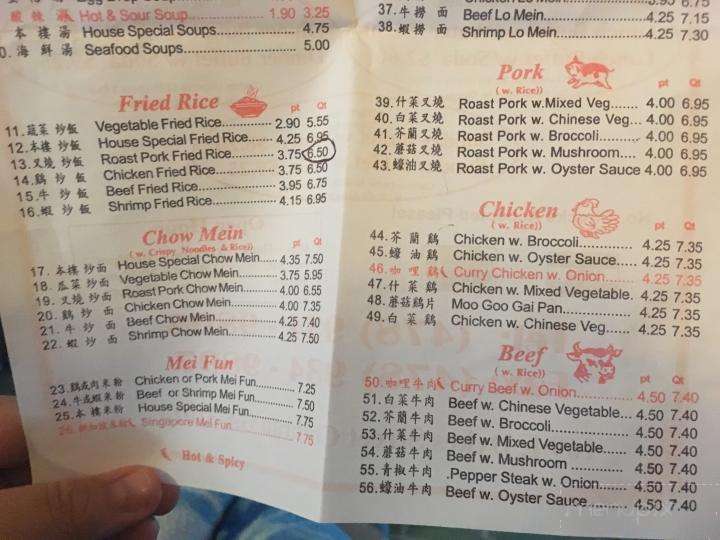 酸 辣 湯 Hot & Sour Soup 1.90 3.25
本 樓 湯 House Special Soups 4.75
0. 海 鮮 湯 Seafood Soups 5.00
Fried Rice
pt Qt
11. 蔬菜 炒飯 Vegetable Fried Rice 2.90 5.55
12. 本樓 炒飯 House Special Fried Rice 4.25 6.95
13. 叉燒 炒飯 Roast Pork Fried Rice 3.75 6.50
14. 鷄 炒 飯 Chicken Fried Rice 3.75 6.50
15. 牛 炒 飯 Beef Fried Rice 3.95 6.75
16. 蝦 炒 飯 Shrimp Fried Rice 4.15 6.95
Chow Mein
( w. Crispy Noodles & Rice))
pt Qt
17. 本樓 炒 面 House Special Chow Mein 4.35 7.50
18. 瓜菜 炒 面 Vegetable Chow Mein 3.75 5.95
19. 叉燒 炒 面 Roast Pork Chow Mein 4.00 6.55
20. 鷄 炒 面 Chicken Chow Mein 4.00 7.35
21. 牛 炒 面 Beef Chow Mein 4.25 7.40
22. 蝦 炒 面 Shrimp Chow Mein 4.25 7.50
Mei Fun
23. 鷄或肉米粉 Chicken or Pork Mei Fun 7.25
24. 牛或蝦米粉 Beef or Shrimp Mei Fun 7.50
25. 本 樓 米粉 House Special Mei Fun 7.75
26. Singapore Mei Fun 7.75
Hot & Spicy
37. 牛 撈 面 Beef Lo Mein 4.25 7.15
38. 蝦 撈 面 Shrimp Lo Mein 4.25 7.30
Pork
( w. Rice))
pt Qt
39. 什菜叉燒 Roast Pork w.Mixed Veg....... 4.00 6.95
40. 白菜叉燒 Roast Pork w. Chinese Veg... 4.00 6.95
41. 芥蘭叉燒 Roast Pork w. Broccoli.......... 4.00 6.95
42. 蘑菇叉燒 Roast Pork w. Mushroom.... 4.00 6.95
43. 蠔油叉燒 Roast Pork w. Oyster Sauce 4.00 6.95
Chicken
( w. Rice))
pt Qt
44. 芥 蘭 鷄 Chicken w. Broccoli 4.25 7.35
45. 蠔 油 鷄 Chicken w. Oyster Sauce..... 4.25 7.35
46. 咖 喱 鷄 Curry Chicken w. Onion 4.25 7.35
47. 什 菜 鷄 Chicken w. Mixed Vegetable. 4.25 7.35
48. 蘑菇鷄片 Moo Goo Gai Pan 4.25 7.35
49. 白 菜 鷄 Chicken w. Chinese Veg....... 4.25 7.35
Beef
( w. Rice))
pt Qt
50. 咖喱牛肉 Curry Beef w. Onion 4.50 7.40
51. 白菜牛肉 Beef w. Chinese Vegetable... 4.50 7.40
52. 芥蘭牛肉 Beef w. Broccoli 4.50 7.40
53. 什菜牛肉 Beef w. Mixed Vegetable...... 4.50 7.40
54. 蘑菇牛肉 Beef w. Mushroom 4.50 7.40
55. 青椒牛肉 .Pepper Steak w. Onion....... 4.50 7.40
56. 蠔油牛肉 Beef w. Oyster Sauce 4.50 7.40